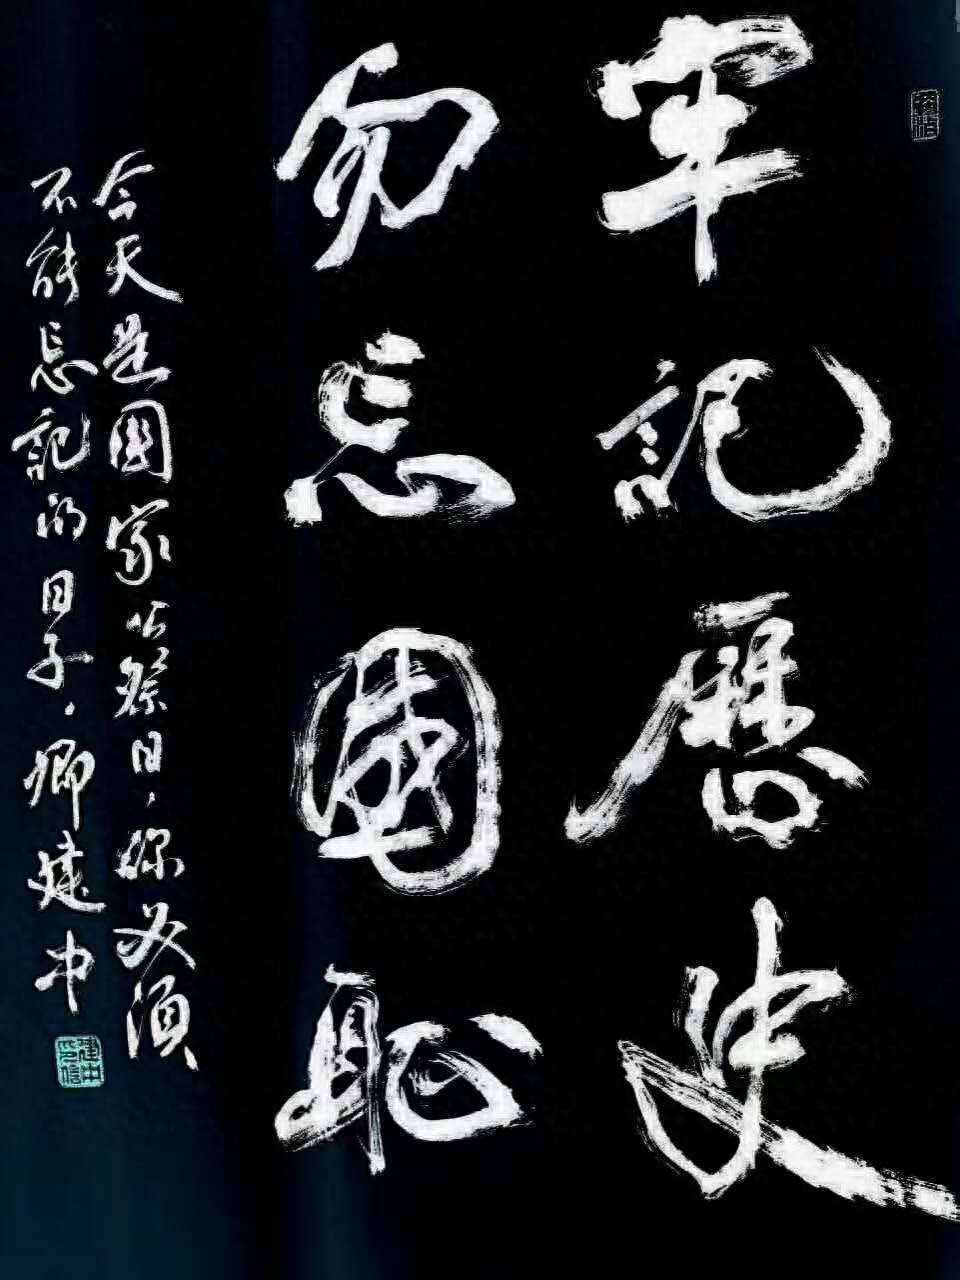 牢記歷史
勿忘國恥
今天是國家公祭日，你必須
不能忘記的日子。卿建中
建中印信